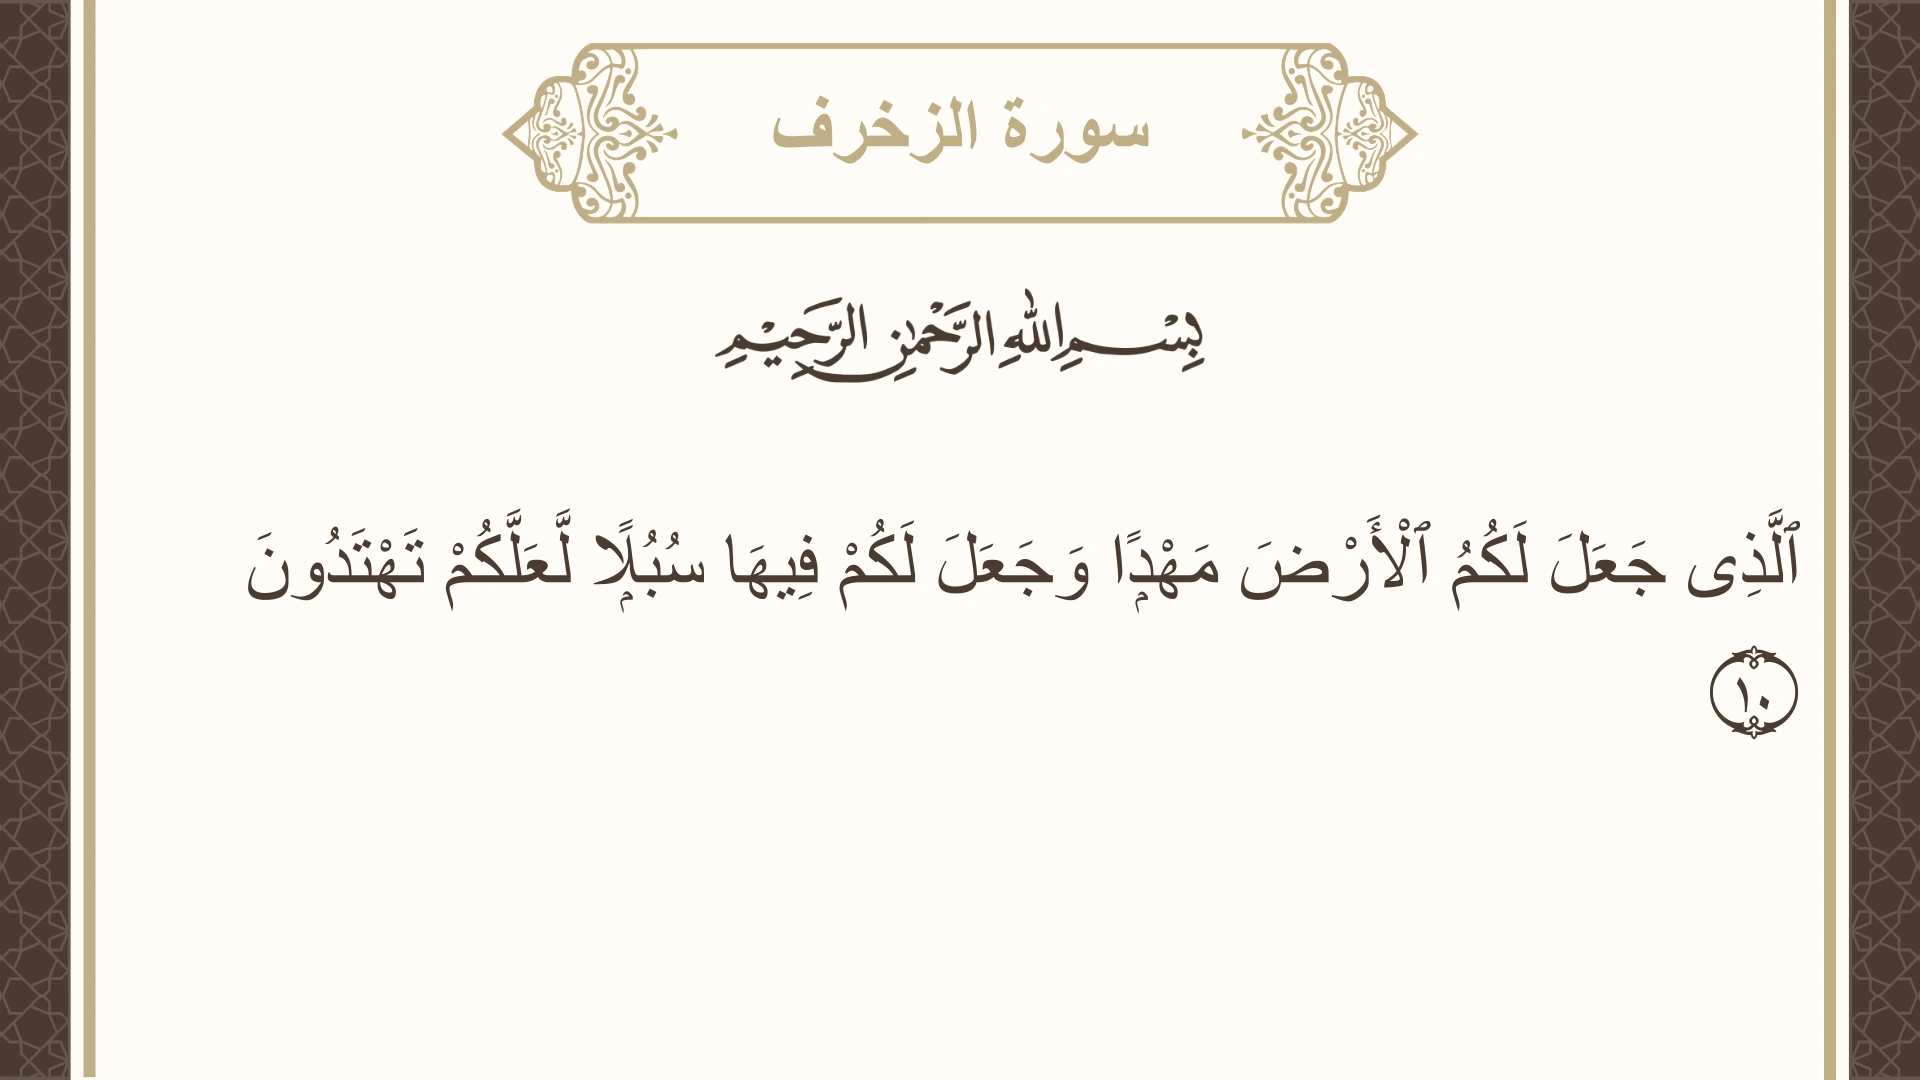 سورة الزخرف
بِسْمِ اللهِ الرَّحْمٰنِ الرَّحِيْمِ
ٱلَّذِى جَعَلَ لَكُمُ ٱلْأَرْضَ مَهْدًۭا وَجَعَلَ لَكُمْ فِيهَا سُبُلًۭا لَّعَلَّكُمْ تَهْتَدُونَ
١٠